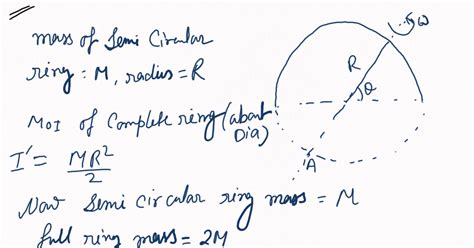 mass of Semi Circular
ring : M, radius = R
MOI of Complete ring (about Dia)
I' = MR²/2
Now Semi circular ring mass = M
full ring mass = 2M
ω
R
θ
A